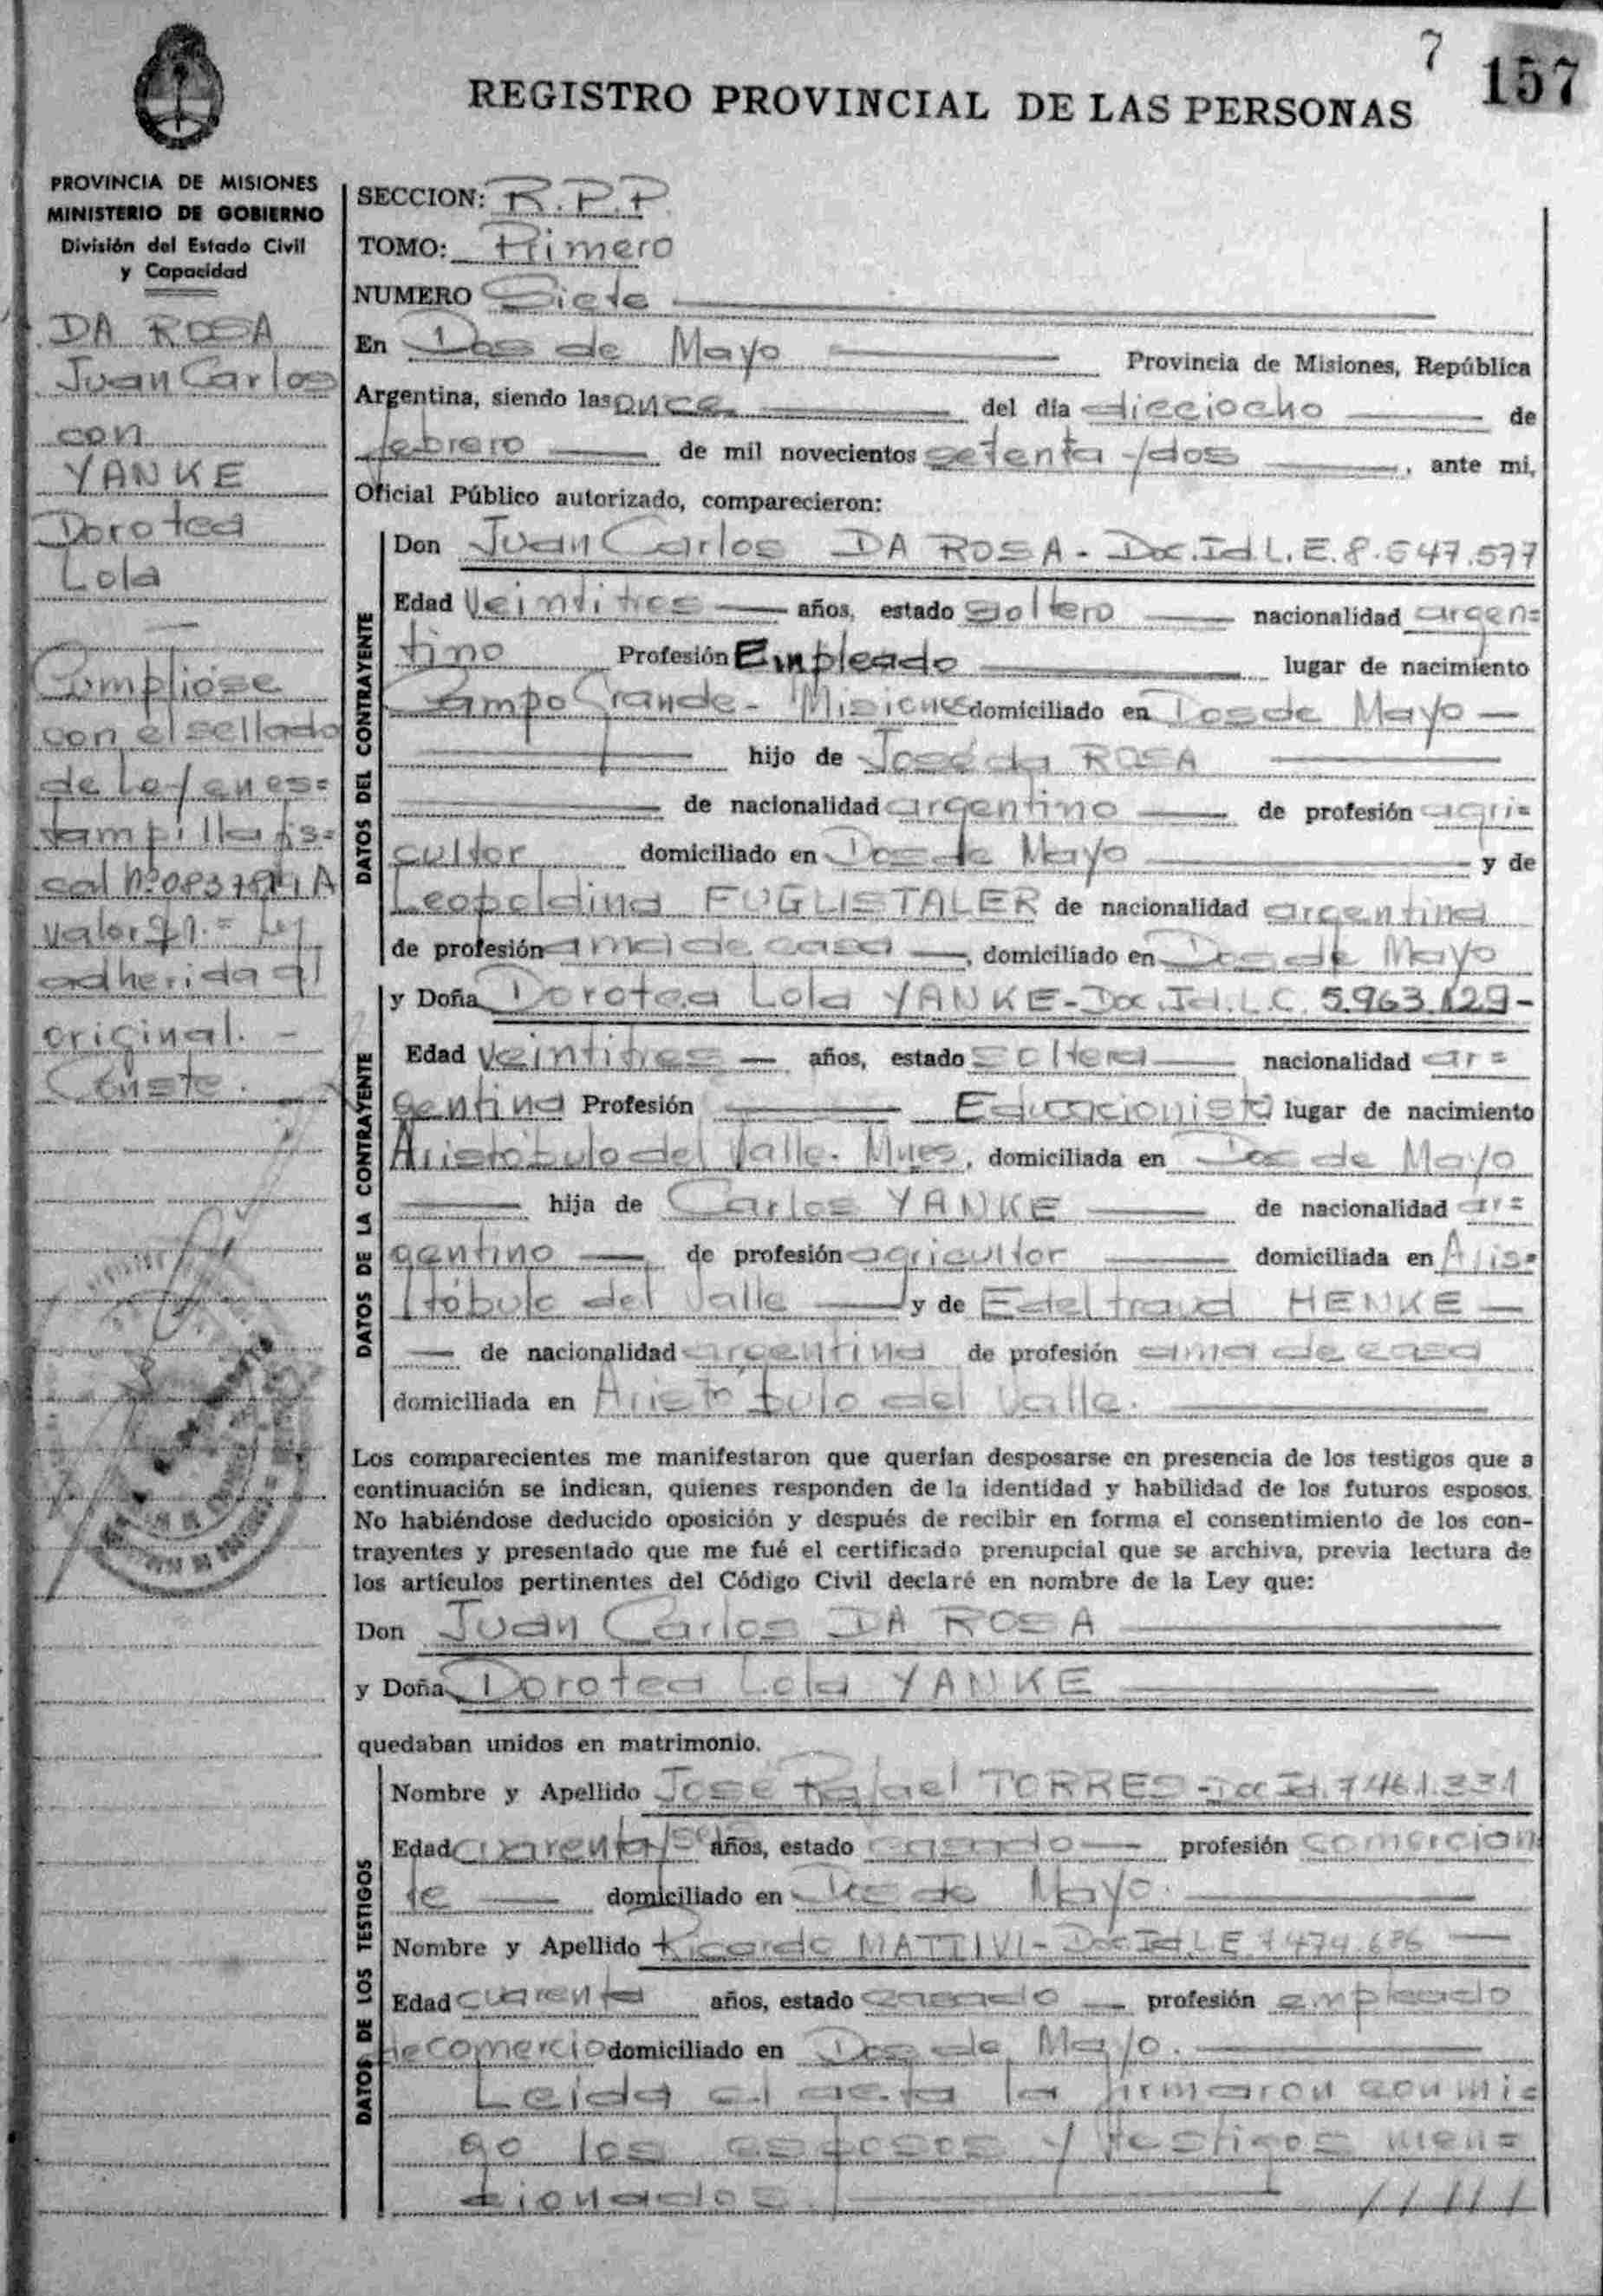 7 157
REGISTRO PROVINCIAL DE LAS PERSONAS
PROVINCIA DE MISIONES
MINISTERIO DE GOBIERNO
División del Estado Civil
y Capacidad
DA ROSA
Juan Carlos
con
YANKE
Dorotea
Lola
Cumplióse
con el sellado
de Ley en es=
tampilla fis=
cal Nº
valor $ 1.= Ley
adherida al
original. -
Conste.
SECCION: R.P.P.
TOMO: Primero
NUMERO Siete
En Dos de Mayo Provincia de Misiones, República
Argentina, siendo las once del día dieciocho de
febrero de mil novecientos setenta y dos, ante mi,
Oficial Público autorizado, comparecieron:
DATOS DEL CONTRAYENTE
Don Juan Carlos DA ROSA - Doc. Id. L.E. 8.547.577
Edad Veintitres años, estado soltero nacionalidad argen=
tino Profesión Empleado lugar de nacimiento
Campo Grande - Misiones domiciliado en Dos de Mayo -
hijo de José da ROSA
de nacionalidad argentino de profesión agri=
cultor domiciliado en Dos de Mayo y de
Leopoldina FUGLISTALER de nacionalidad argentina
de profesión ama de casa, domiciliado en Dos de Mayo
DATOS DE LA CONTRAYENTE
y Doña Dorotea Lola YANKE - Doc. Id. L.C. 5.963.129 -
Edad Veintitres - años, estado soltera nacionalidad ar=
gentina Profesión Educacionista lugar de nacimiento
Aristóbulo del Valle - Mnes, domiciliada en Dos de Mayo
hija de Carlos YANKE de nacionalidad ar=
gentino de profesión agricultor domiciliada en Aris=
tóbulo del Valle y de Edeltraud HENKE -
de nacionalidad argentina de profesión ama de casa
domiciliada en Aristóbulo del Valle.
Los comparecientes me manifestaron que querían desposarse en presencia de los testigos que a
continuación se indican, quienes responden de la identidad y habilidad de los futuros esposos.
No habiéndose deducido oposición y después de recibir en forma el consentimiento de los con-
trayentes y presentado que me fué el certificado prenupcial que se archiva, previa lectura de
los artículos pertinentes del Código Civil declaré en nombre de la Ley que:
Don Juan Carlos DA ROSA
y Doña Dorotea Lola YANKE
quedaban unidos en matrimonio.
DATOS DE LOS TESTIGOS
Nombre y Apellido José Rafael TORRES - Doc Id. 7.461.331
Edad cuarenta/seis años, estado casado profesión comercian
te domiciliado en Dos de Mayo.
Nombre y Apellido Ricardo MATTIVI - Doc Id. L.E. 7.474.686
Edad cuarenta años, estado casado profesión empleado
de comercio domiciliado en Dos de Mayo.
Leida el acta la firmaron conmi=
go los esposos y testigos men=
cionados. /////